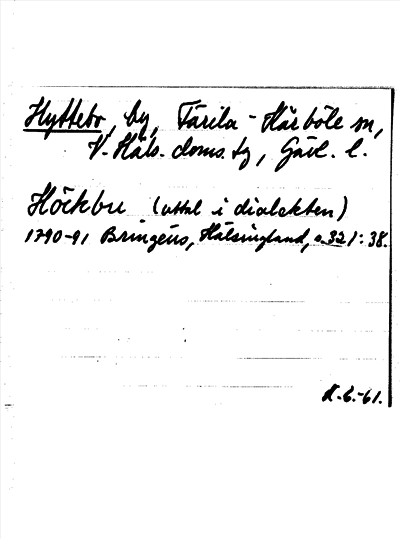 Hyttebo, by, Färila-Kårböle sn,
V. Häls. doms. tg, Gävl. l.
Höckbu (uttal i dialekten)
1790-91 Bringéus, Hälsingland, s. 32 f: 38.
K.G.-61.